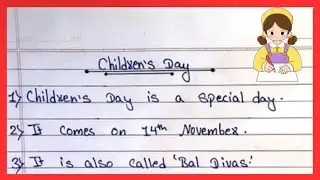 Children's Day
1) Children's Day is a special day.
2) It comes on 14th November.
3) It is also called 'Bal Divas.'